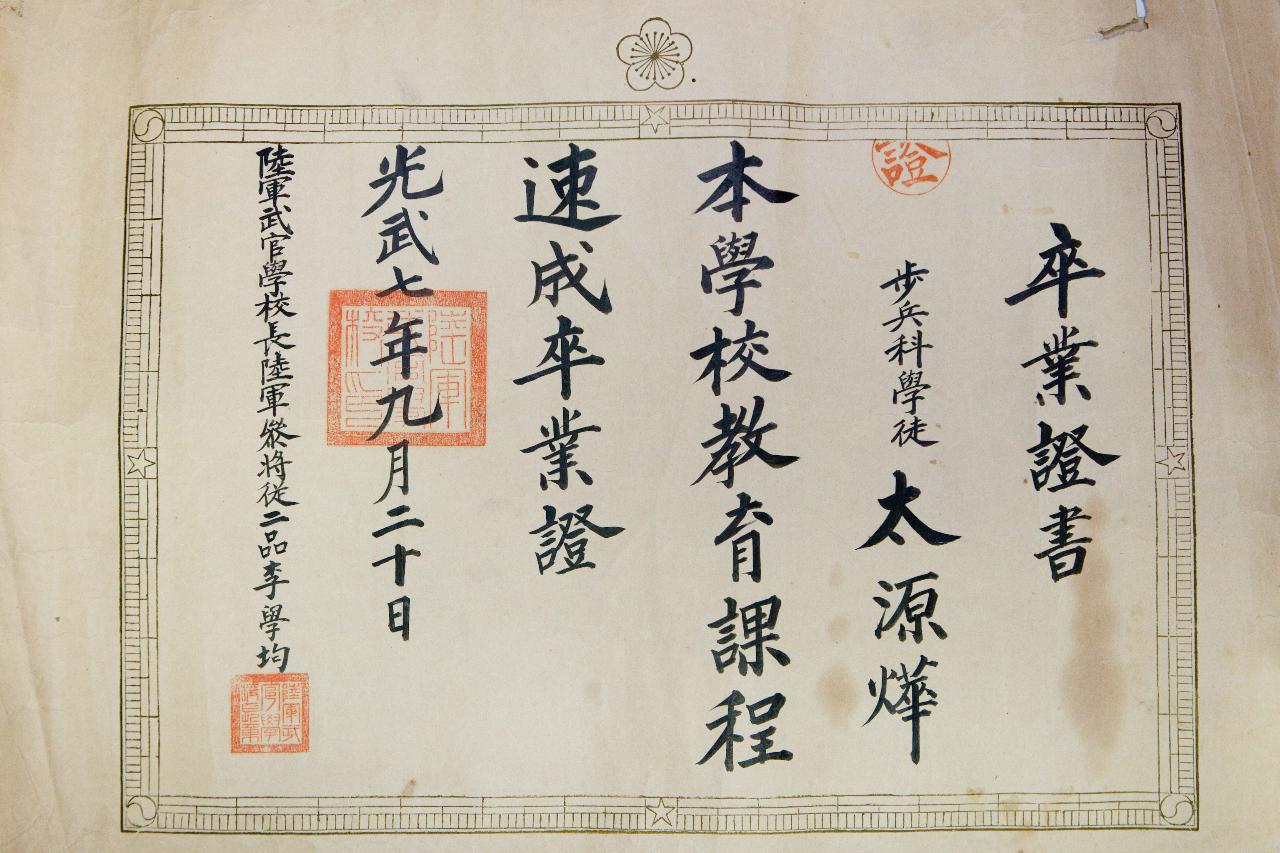 卒業證書
證
步兵科學徒 太源燁
本學校教育課程
速成卒業證
光武七年九月二十日
陸軍武官學校長陸軍參將從二品李學均